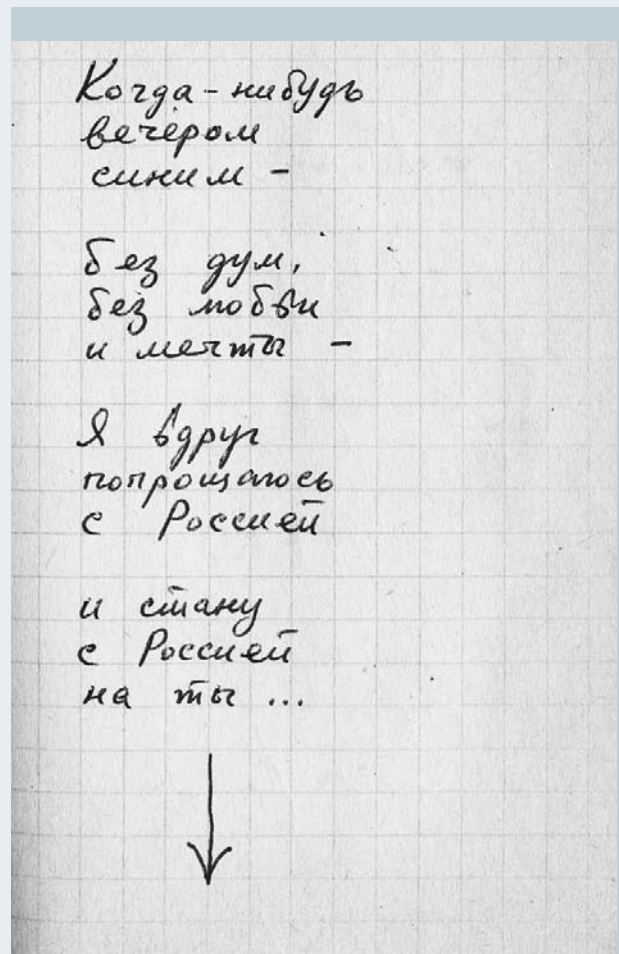 Когда-нибудь
вечером
синим -
без дум,
без любви
и мечты -
Я вдруг
попрощаюсь
с Россией
и стану
с Россией
на ты ...